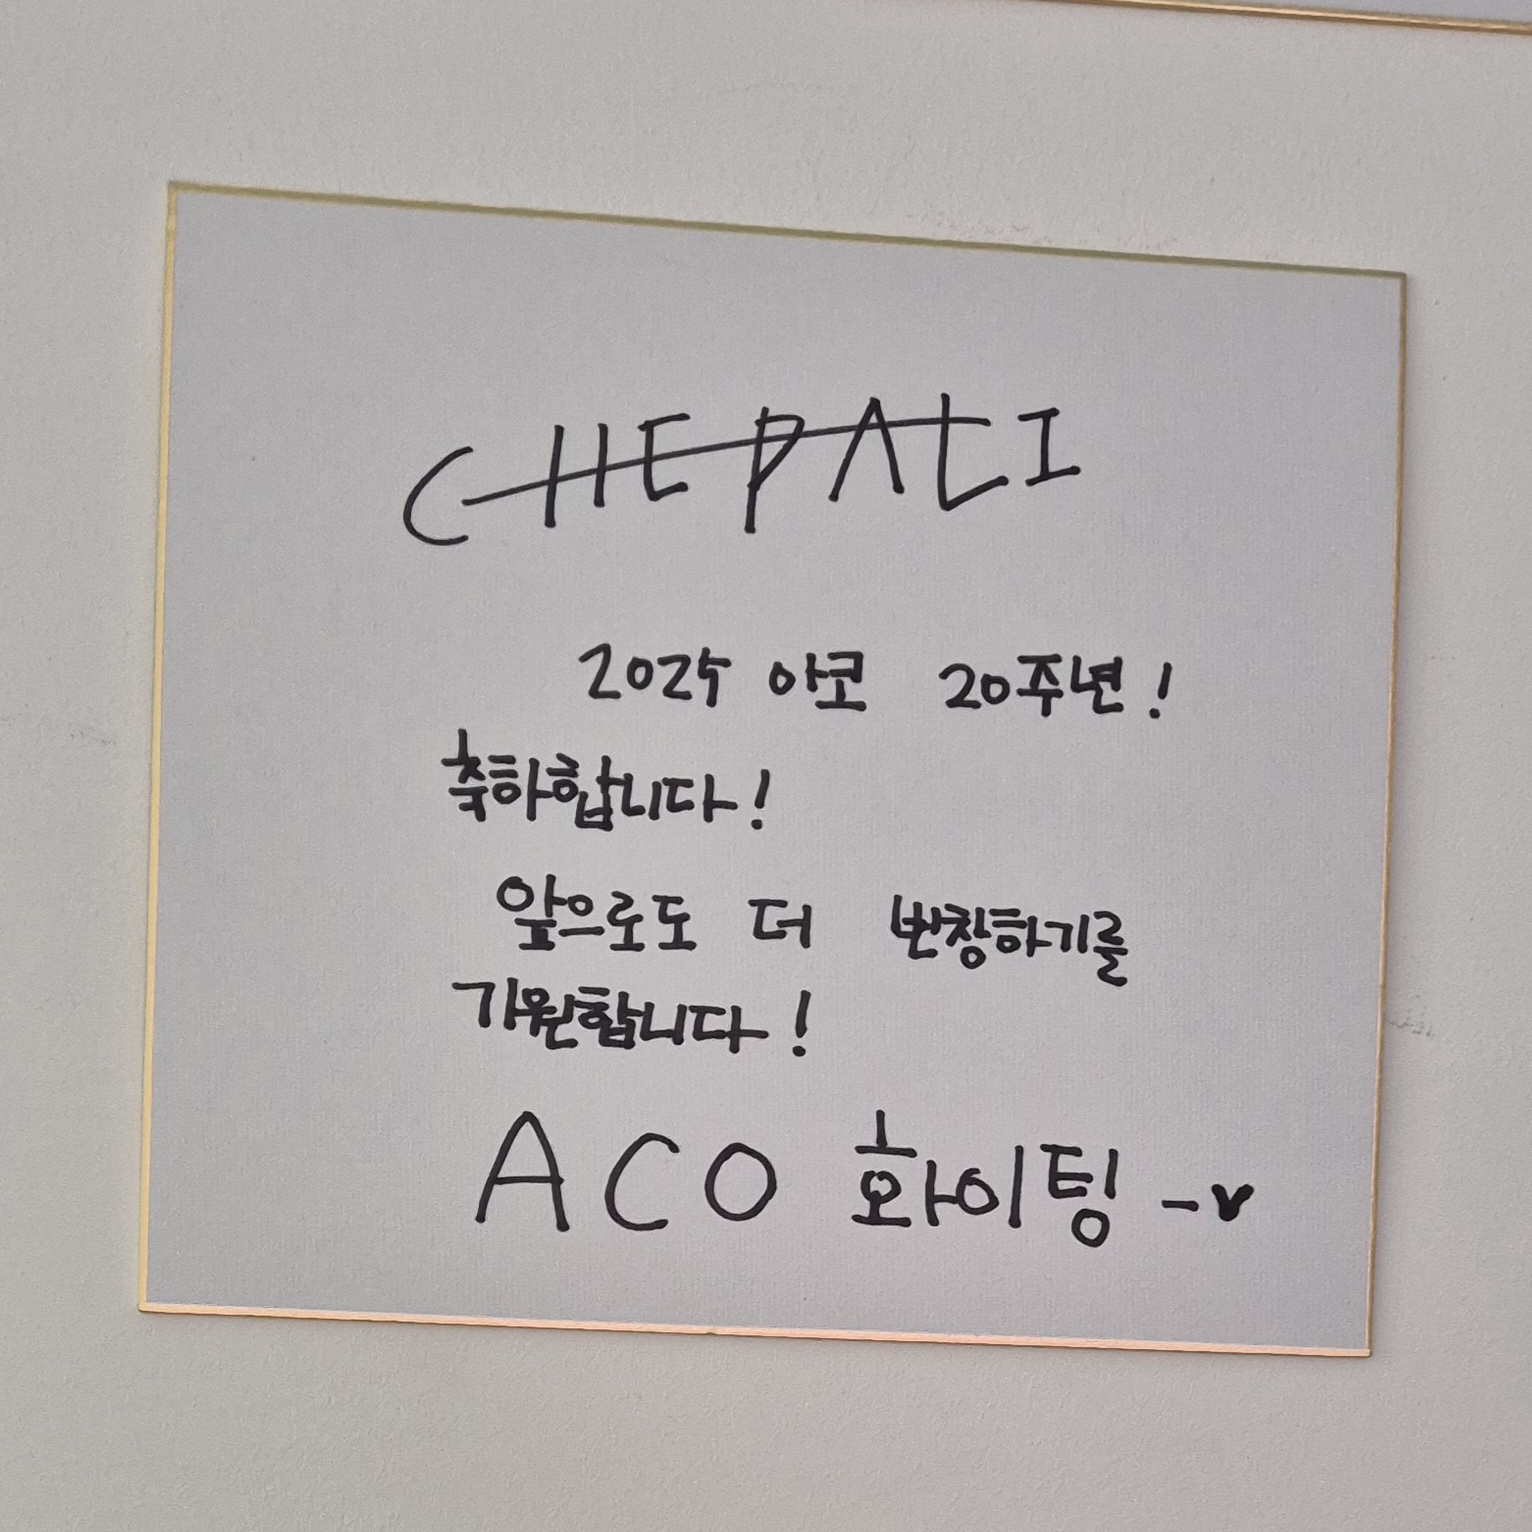 CHEPALI
2025 아코 20주년!
축하합니다!
앞으로도 더 번창하기를
기원합니다!
ACO 화이팅 -v